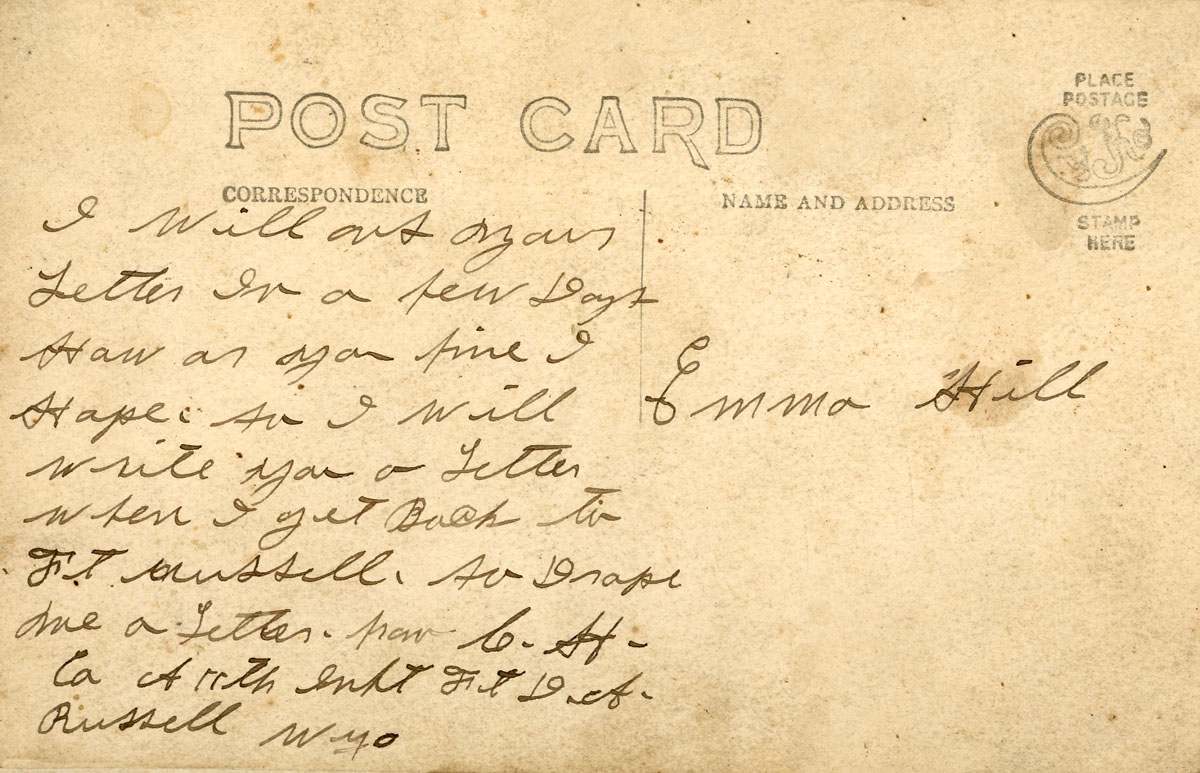 POST CARD
PLACE
POSTAGE
STAMP
HERE
CORRESPONDENCE
NAME AND ADDRESS
I Will your
Letter In a few Days
Haw ar you fine I
Hape. so I will
write you a Letter
when I get Back to
Ft Russell. so Drape
me a Letter. from C. H.
Co A 11th Inft Ft D.A.
Russell Wyo
Emma Hill